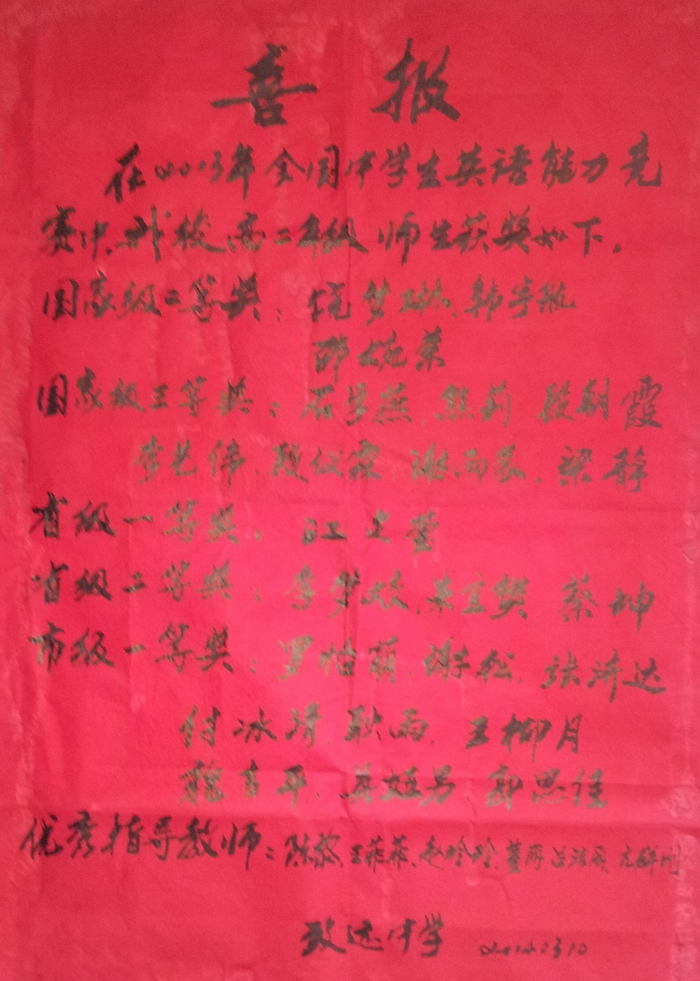 喜报
在2013年全国中学生英语能力竞
赛中,我校高二年级师生获奖如下.
国家级二等奖:饶梦琳、韩宇航
邵婉荣
国家级三等奖:石梦燕、熊莉 段朝霞
李艺伟、段仪霖、谢雨农、梁静
省级一等奖:江文莹
省级二等奖:李梦姣、朱宝樊 蔡坤
市级一等奖:罗怡萌、谢松、张济达
付冰清、耿雨、王柳月
魏吉平、吴姬男、郭思佳
优秀指导教师:陈黎、王菲菲、赵玲玲、董丽
致远中学 20140310